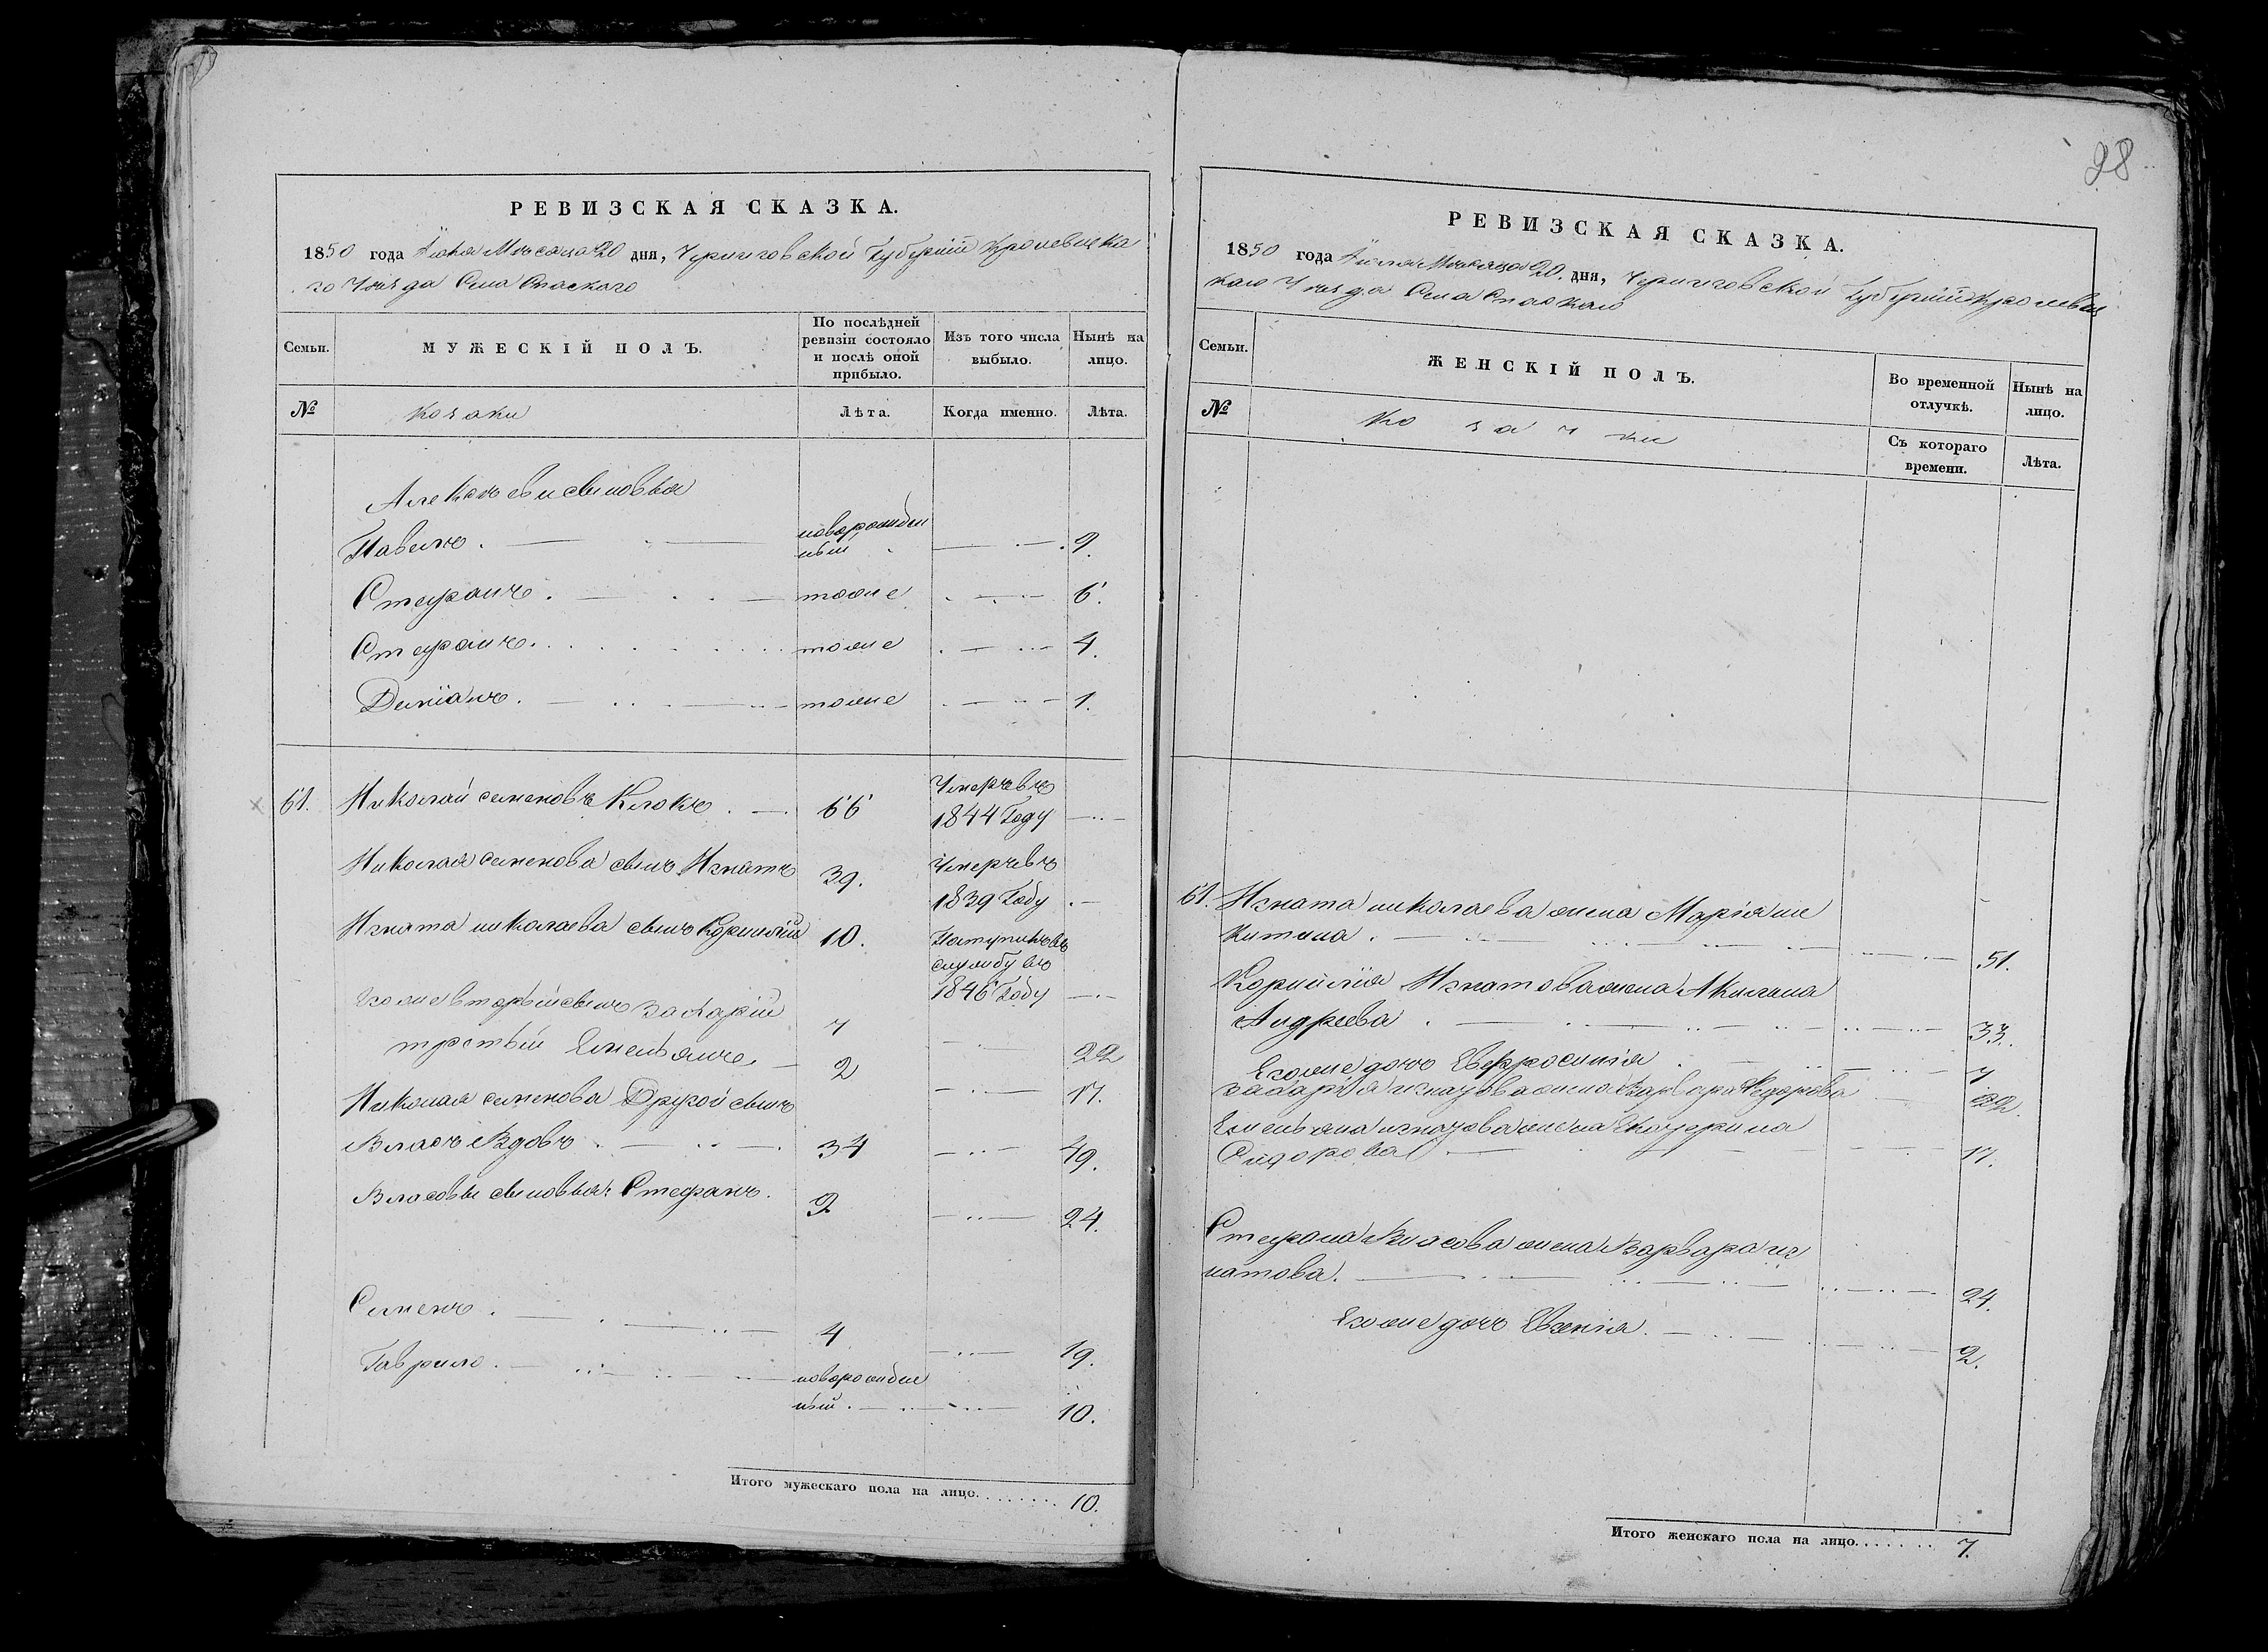 РЕВИЗСКАЯ СКАЗКА.
1850 года Іюля Мѣсяца 20 дня, Черниговской Губерніи Кролевецка
го Уѣзда Села Спаского
Семьи.
МУЖЕСКІЙ ПОЛЪ.
По послѣдней ревизіи состояло и послѣ оной прибыло.
Изъ того числа выбыло.
Нынѣ на лицо.
№
козаки
Лѣта.
Когда именно.
Лѣта.
Алексѣевы сыновья
Павелъ новорожден
ный 9.
Стефанъ тоже 6.
Стефанъ тоже 4.
Деміанъ тоже 1.
61. Николай семеновъ Клокъ 66 Умеръ въ
1844 Году
Николая семенова сынъ Игнатъ 39. Умеръ въ
1839 Году
Игната николаева сынъ Корнилій 10. Поступилъ въ
службу въ
1846 Году
Егоже вторый сынъ Захарій 7 22
третый Емельянъ 2 17.
Николая семенова Другой сынъ
Власъ Вдовъ 34 49.
Власовы сыновья: Стефанъ 9 24.
Семенъ 4 19.
Гаврило новорожден
ный 10.
Итого мужескаго пола на лицо 10.
98
РЕВИЗСКАЯ СКАЗКА.
1850 года Іюля Мѣсяца 20 дня, Черниговской Губерніи Кролевец
каго Уѣзда Села Спаскаго
Семьи.
ЖЕНСКІЙ ПОЛЪ.
Во временной отлучкѣ.
Нынѣ на лицо.
№
козачки
Съ котораго времени.
Лѣта.
61. Игната николаева жена Марія ни
китина 51.
Корнилія Игнатова жена Акилина
Андреева 33.
Егоже дочь Евфросинія 7
Захарія игнатова жена Варвара Федорова 22.
Емельяна игнатова жена Екатерина
Сидорова 17.
Стефана Власова жена Варвара иг
натова 24.
Егоже дочь Евгенія 2.
Итого женскаго пола на лицо 7.